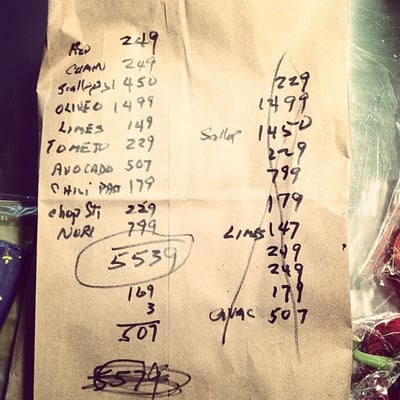 249
CHAM 249
Scallions 1 450
OLIVEO 1499
LIMES 149
TOMETO 229
AVOCADO 507
CHILI PAST 179
chop Sti 229
NORI 799
5539
169
3
507
229
1499
Scallop 1450
229
799
179
LIMES 147
249
249
179
507